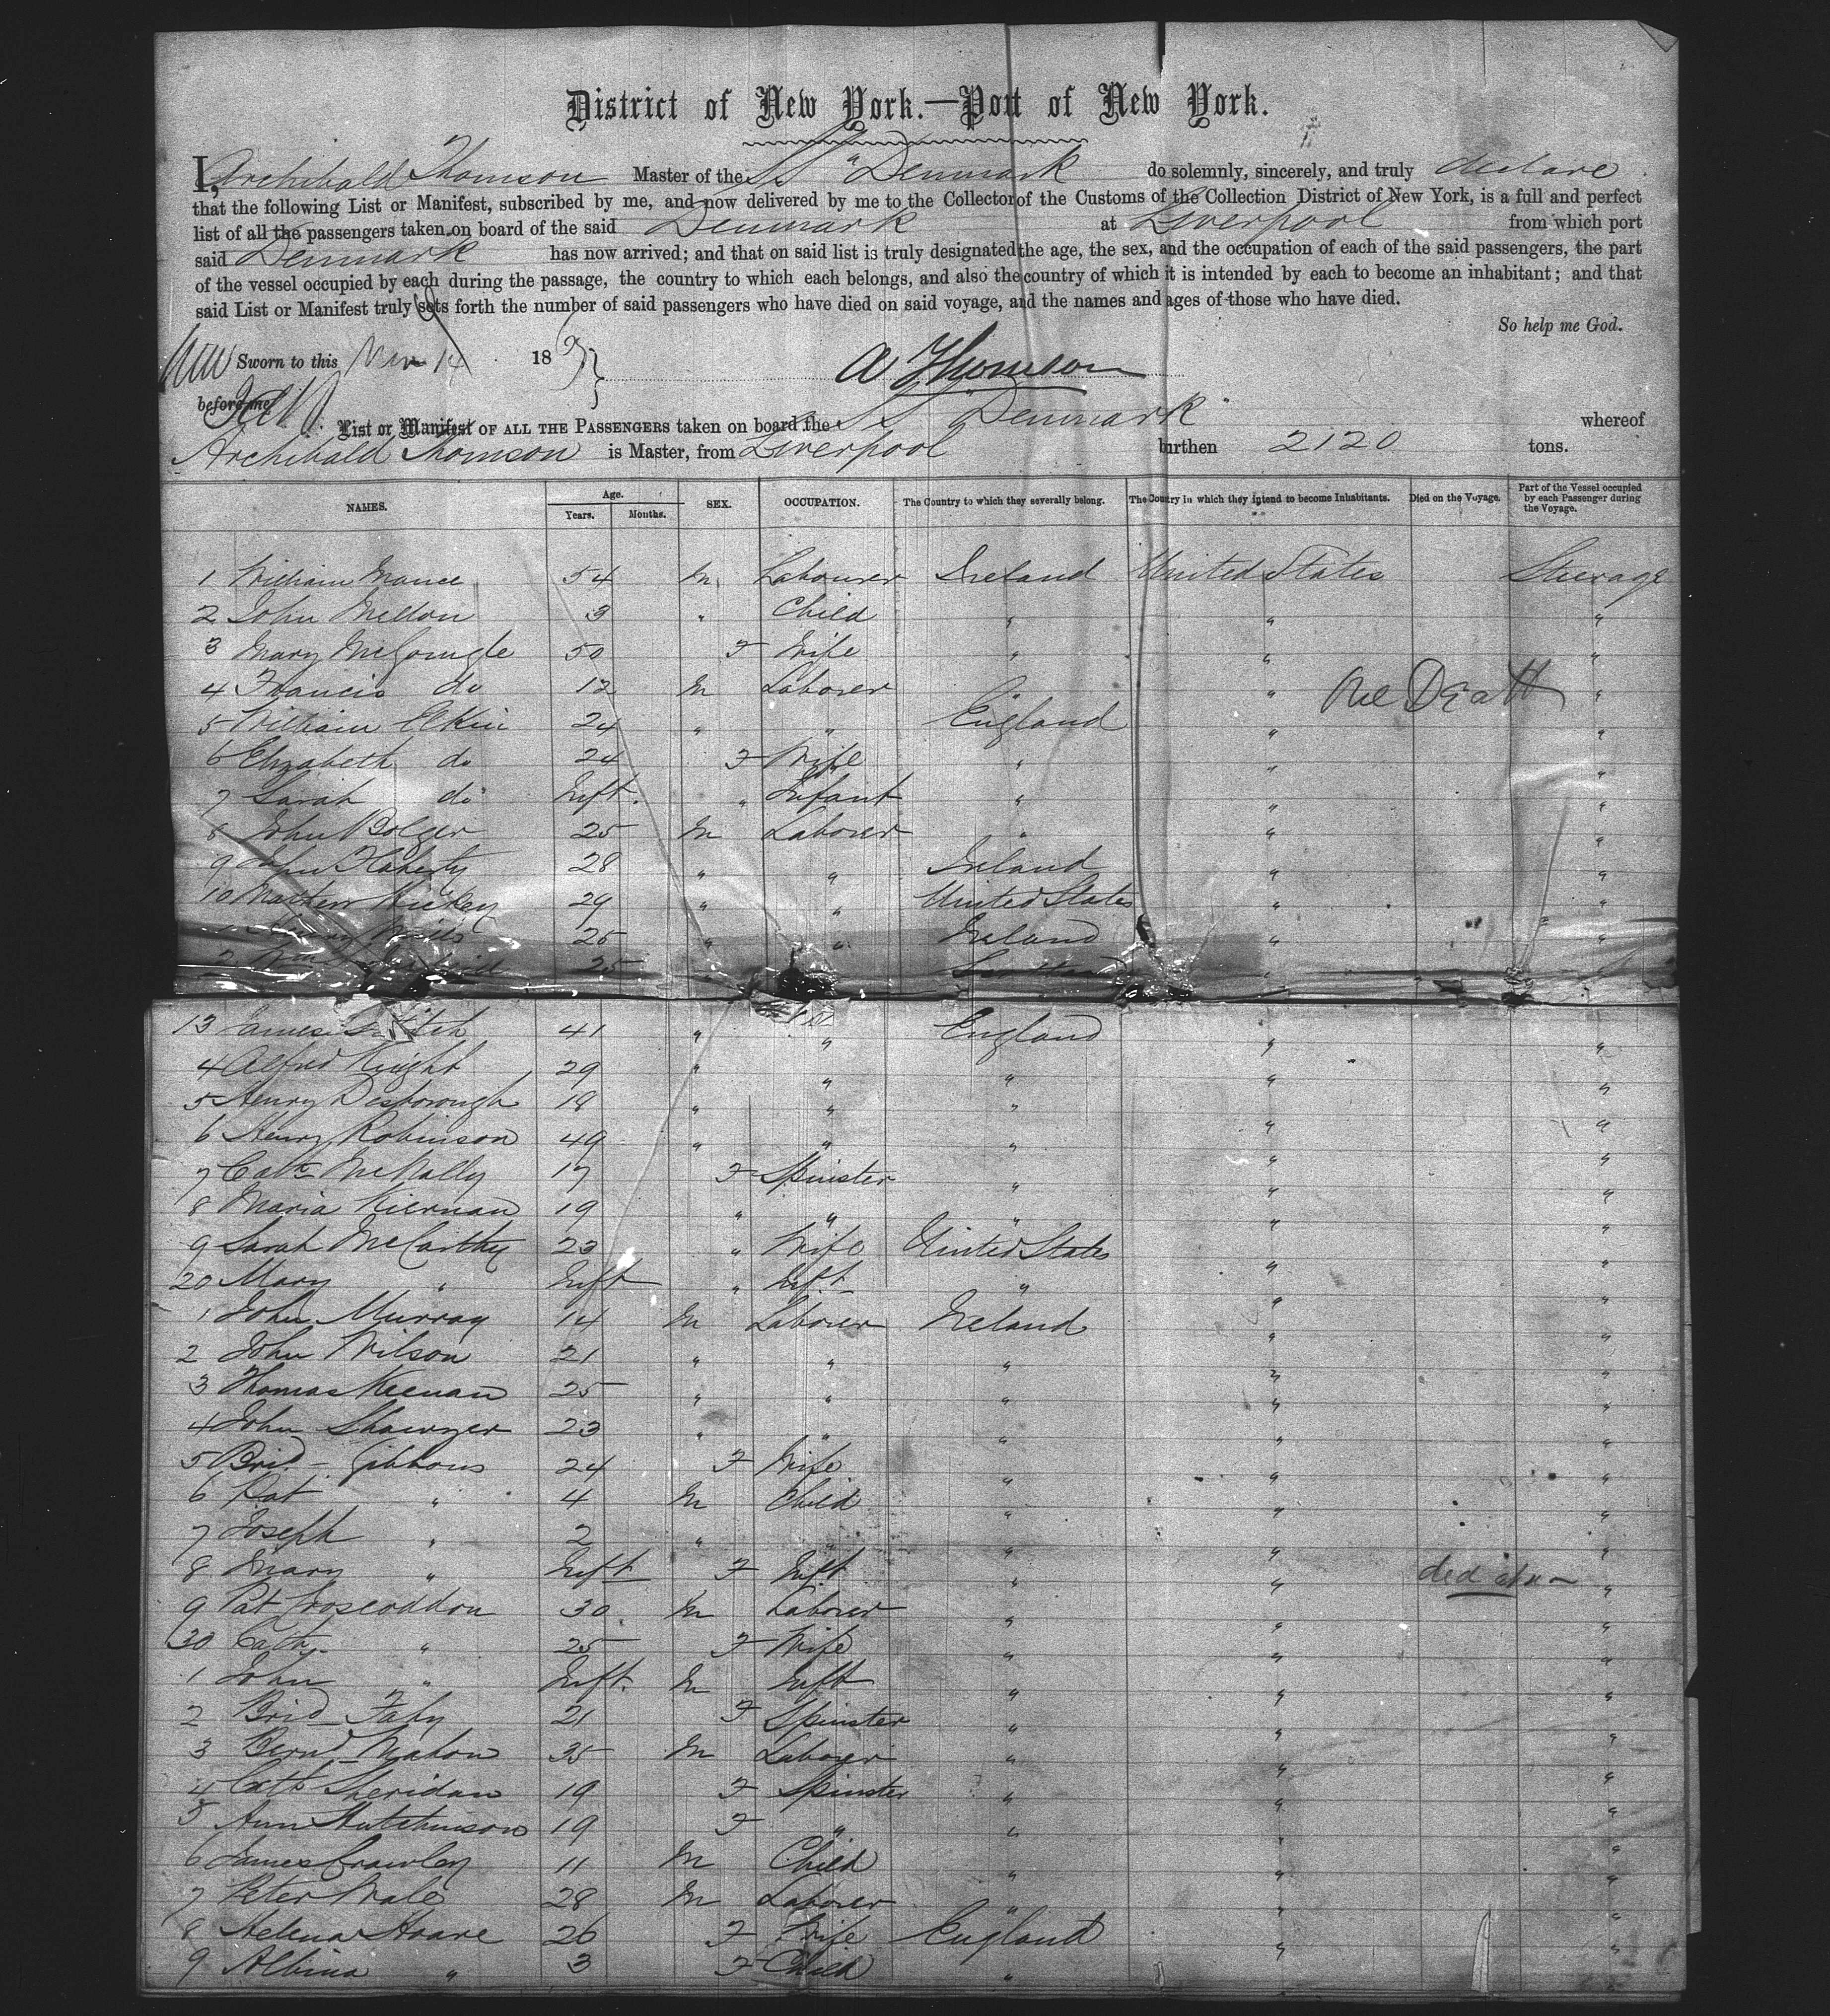 District of New York.—Port of New York.
I, Archibald Thomson Master of the SS "Denmark do solemnly, sincerely, and truly declare
that the following List or Manifest, subscribed by me, and now delivered by me to the Collector of the Customs of the Collection District of New York, is a full and perfect
list of all the passengers taken on board of the said Denmark at Liverpool from which port
said Denmark has now arrived; and that on said list is truly designated the age, the sex, and the occupation of each of the said passengers, the part
of the vessel occupied by each during the passage, the country to which each belongs, and also the country of which it is intended by each to become an inhabitant; and that
said List or Manifest truly sets forth the number of said passengers who have died on said voyage, and the names and ages of those who have died.
So help me God.
Sworn to this 14 186
A Thomson
before me
List or Manifest OF ALL THE PASSENGERS taken on board the SS "Denmark" whereof
Archibald Thomson is Master, from Liverpool burthen 2120 tons.
NAMES. Age. Years. Months. SEX. OCCUPATION. The Country to which they severally belong. The Country in which they intend to become Inhabitants. Died on the Voyage. Part of the Vessel occupied by each Passenger during the Voyage.
1 William 54 M Labourer Ireland United States Steerage
2 John Mellon 3 " Child " " "
3 Mary McGonigle 50 F Wife " " "
4 Francis do 12 M Laborer " " "
One Death
5 William Elkin 24 " " England " "
6 Elizabeth do 24 F Wife " " "
7 Sarah do Inft. " Infant " " "
8 John Bolger 25 M Laborer " " "
9 John Flaherty 28 " " Ireland " "
10 Matthew Hickey 29 " " United States " "
1 Henry Mills 25 " " Ireland " "
2 Wm 25 "
13 James 41 " " England " "
4 Alfred Knight 29 " " " " "
5 Henry Desborough 18 " " " " "
6 Henry Robinson 49 " " " " "
7 Cath McNally 17 F Spinster " " "
8 Maria Kiernan 19 " " " " "
9 Sarah McCarthy 23 " Wife United States " "
20 Mary " Inft " Inft " " "
1 John Murray 14 M Laborer Ireland " "
2 John Wilson 21 " " " " "
3 Thomas Keenan 25 " " " " "
4 John 23 " " " " "
5 Brid Gibbons 24 F Wife " " "
6 Pat " 4 M Child " " "
7 Joseph " 2 " " " " "
8 Mary " Inft F Inft " " "
9 Pat 30 M Laborer " " "
30 Cath " 25 F Wife " " "
1 John " Inft. M Inft " " "
2 Brid Fahy 21 F Spinster " " "
3 Bernd Mahon 35 M Laborer " " "
4 Cath Sheridan 19 F Spinster " " "
5 Ann Hutchinson 19 F " " " "
6 James Crawley 11 M Child " " "
7 Peter 28 M Laborer " " "
8 Helena Hoare 26 F Wife England " "
9 Albina " 3 F Child "